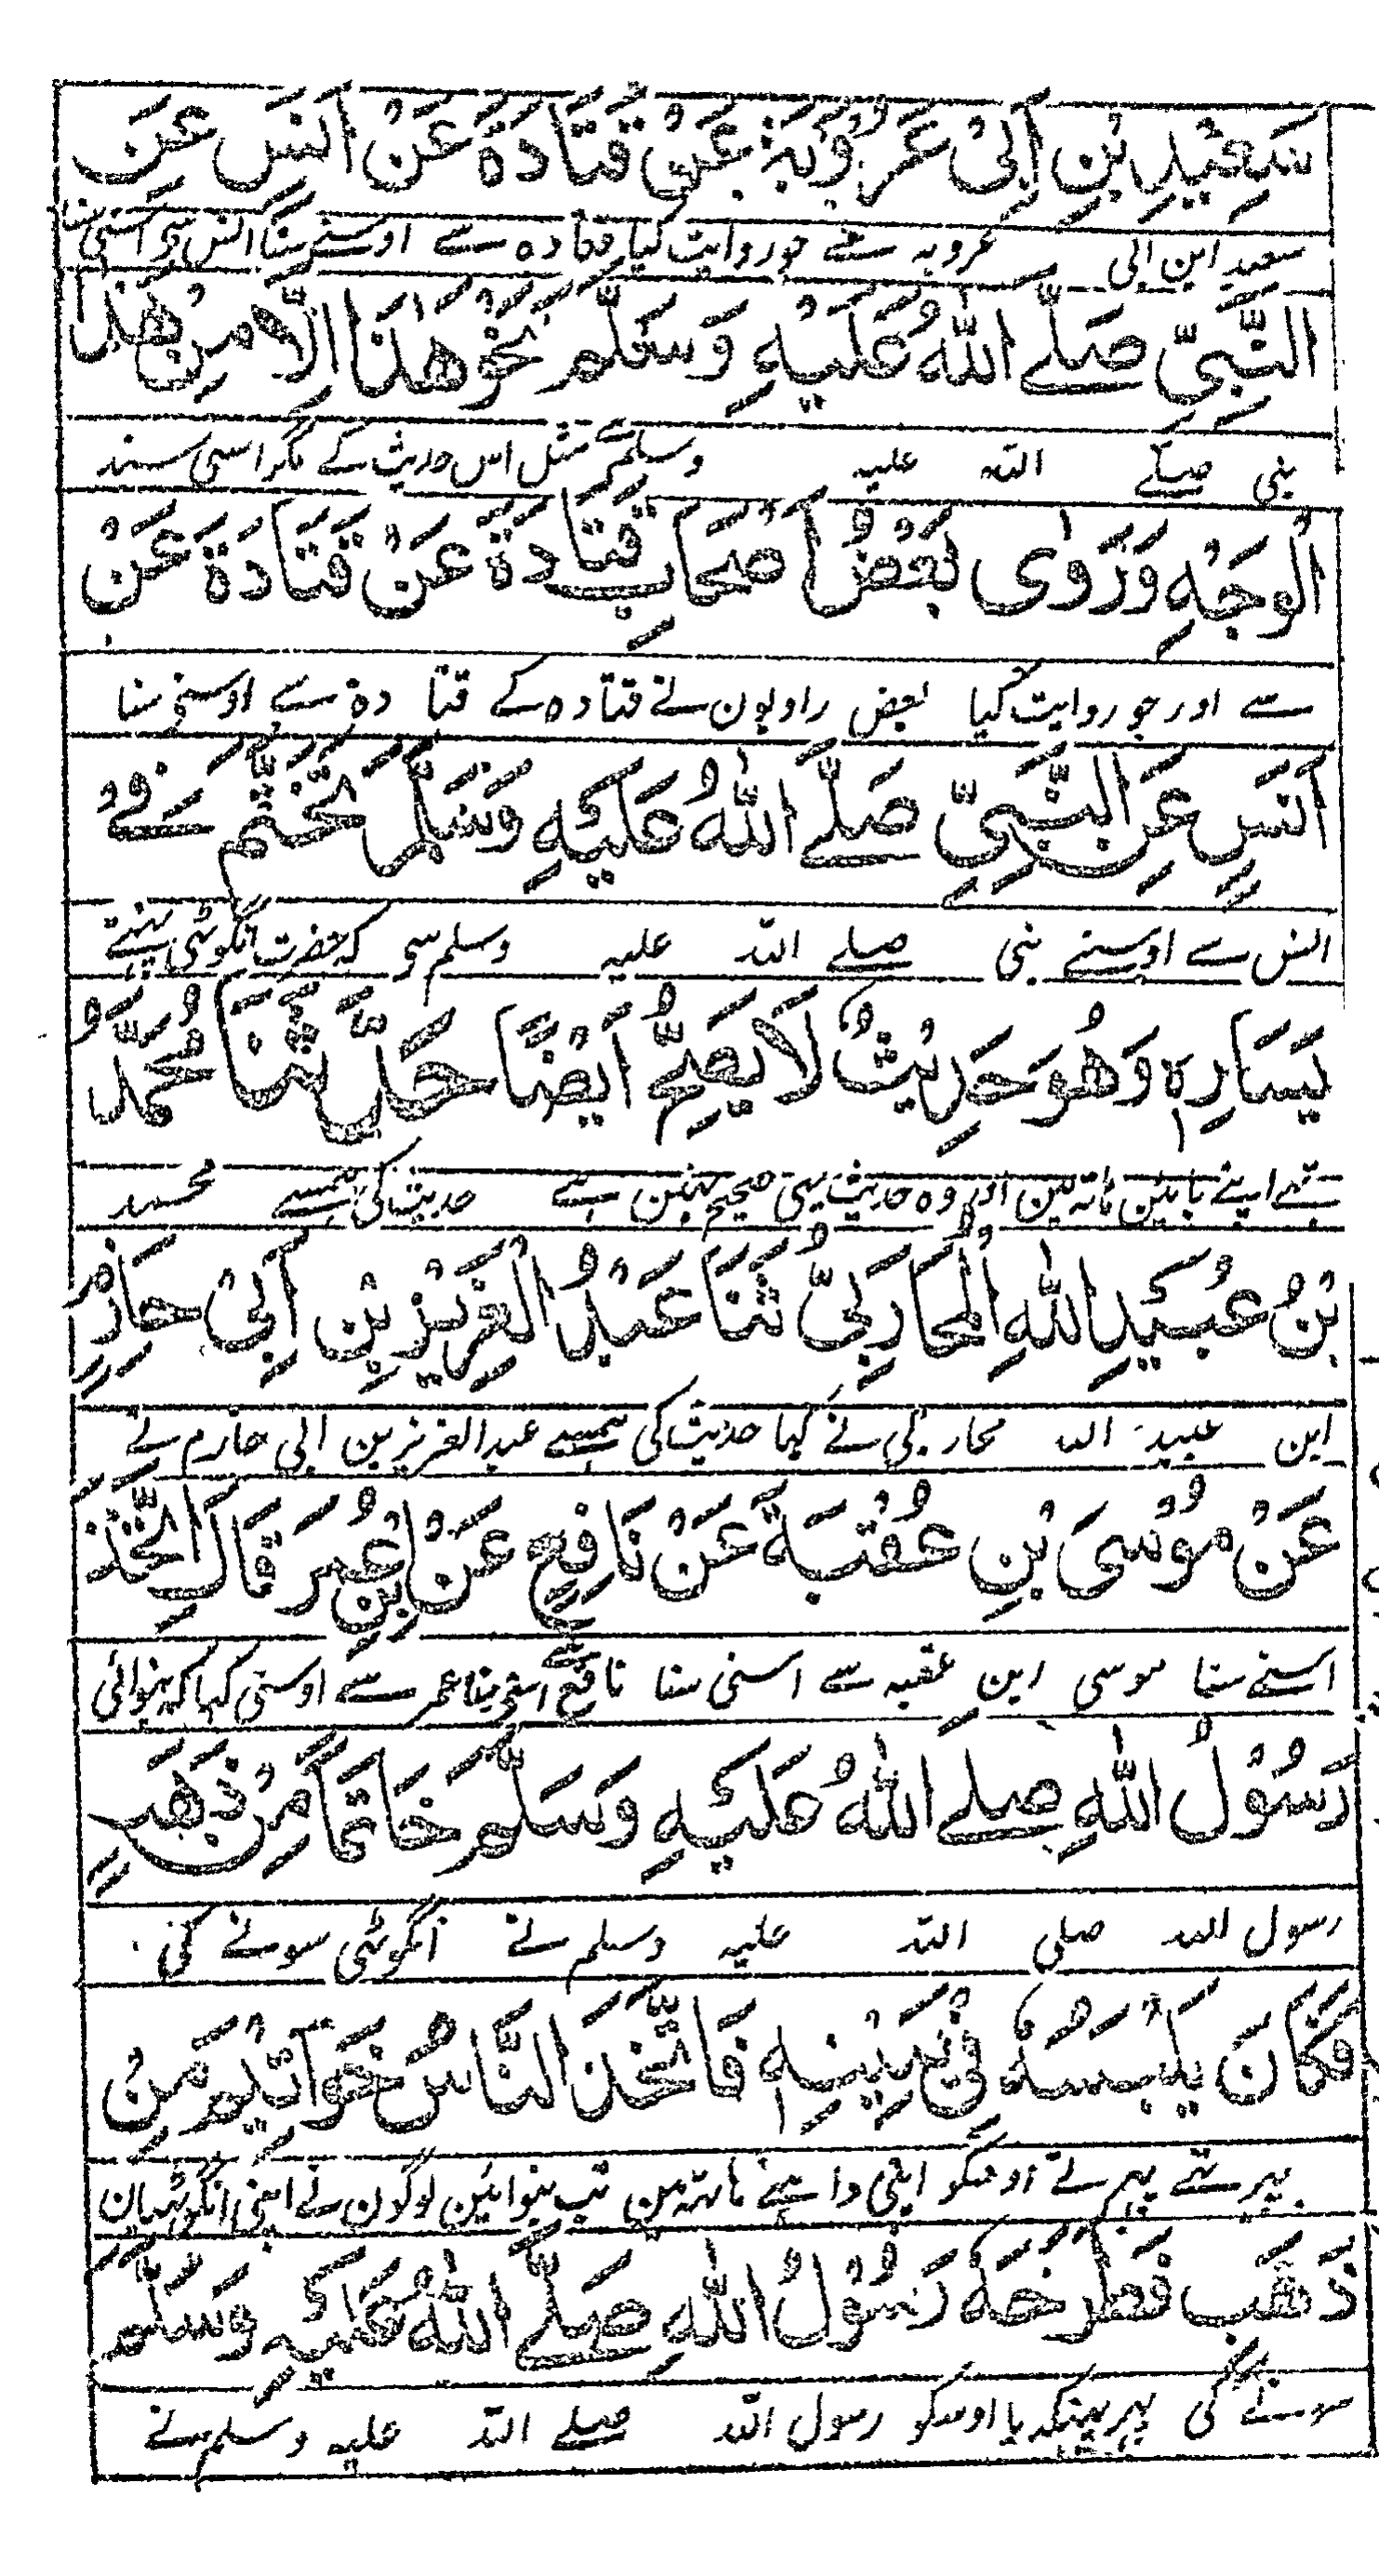 سَعِيْدِ بْنِ اَبِيْ عَرُوْبَةَ عَنْ قَتَادَةَ عَنْ اَنَسٍ عَنِ
سعید ابن ابی عروبہ سے جو روایت کیا قتادہ سے اوسنے سنا انس سی اسنی سنا
النَّبِيِّ صَلَّے اللهُ عَلَيْهِ وَسَلَّمَ نَحْوَ هٰذَا اِلَّا مِنْ هٰذَا
نبی صلے اللہ علیہ وسلم سے مثل اس حدیث کے مگر اسی سند
الْوَجْهِ وَرَوٰى بَعْضُ اَصْحَابِ قَتَادَةَ عَنْ قَتَادَةَ عَنْ
سے اور جو روایت کیا بعض راویون نے قتادہ کے قتا دہ سے اوسنے سنا
اَنَسٍ عَنِ النَّبِيِّ صَلَّے اللهُ عَلَيْهِ وَسَلَّمَ تَخَتَّمَ فِےْ
انس سے اوسنے نبی صلے اللہ علیہ وسلم سی کہ حضرت انگوٹھی پہنتے
يَسَارِهٖ وَهُوَ حَدِيْثٌ لَا يَصِحُّ اَيْضًا حَدَّثَنَا مُحَمَّدُ
تہے اپنے بائین ہاتہ مین اور وہ حدیث بہی صحیح نہین ہے حدیث کی ہمسے محمد
بْنُ عُبَيْدِ اللهِ الْمُحَارَبِيُّ ثَنَا عَبْدُ الْعَزِيْزِ بْنِ اَبِيْ حَازِمٍ
ابن عبید اللہ محاربی نے کہا حدیث کی ہمسے عبد العزیز بن ابی حازم نے
عَنْ مُوْسٰى بْنِ عُقْبَةَ عَنْ نَافِعٍ عَنْ ابْنِ عُمَرَ قَالَ اتَّخَذَ
اسنے سنا موسی ابن عقبہ سے اسنی سنا نافع سے اسنے سنا عمر سے اوسنی کہا کہ بنوائی
رَسُوْلُ اللهِ صلے اللهُ عَلَيْهِ وَسَلَّمَ خَاتَمًا مِنْ ذَهَبٍ
رسول اللہ صلی اللہ علیہ وسلم نے انگوٹھی سونے کی
فَكَانَ يَلْبَسُهٗ فِيْ يَمِيْنِهٖ فَاتَّخَذَ النَّاسُ خَوَاتِيْمَ مِنْ
پہر تہے پہرتے اوسکو اپنی داہنے ہاتہ مین تب بنوائین لوگون نے اپنی انگوٹھیان
ذَهَبٍ فَطَرَحَهٗ رَسُوْلُ اللهِ صَلَّے اللهُ عَلَيْهِ وَسَلَّمَ
سونے کی پہر پہینکدیا اوسکو رسول اللہ صلے اللہ علیہ وسلم نے